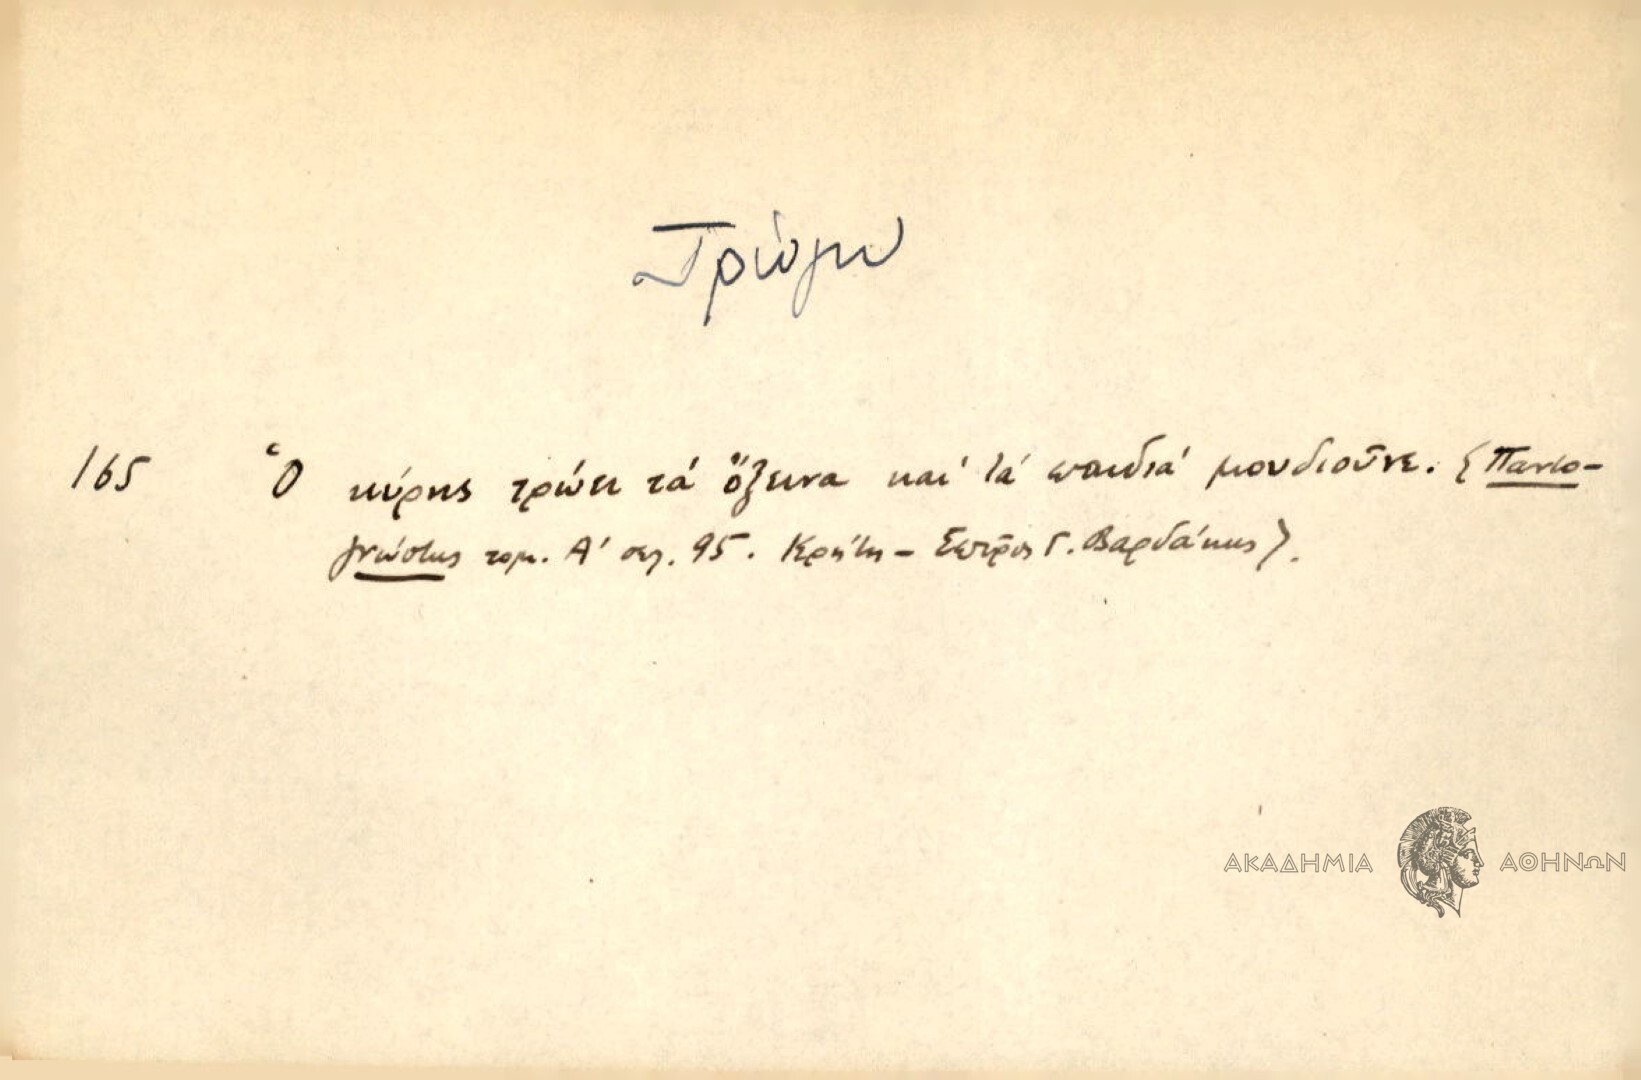 Τρώγω
165 Ὁ κύρης τρώει τά ὄξεινα καί τά παιδιά μουδιοῦνε. {Παντο-
γνώστης τομ. Α' σελ. 95. Κρήτη - Σπῦρος Γ. Βαρδάκης}.
ΑΚΑΔΗΜΙΑ ΑΘΗΝΩΝ